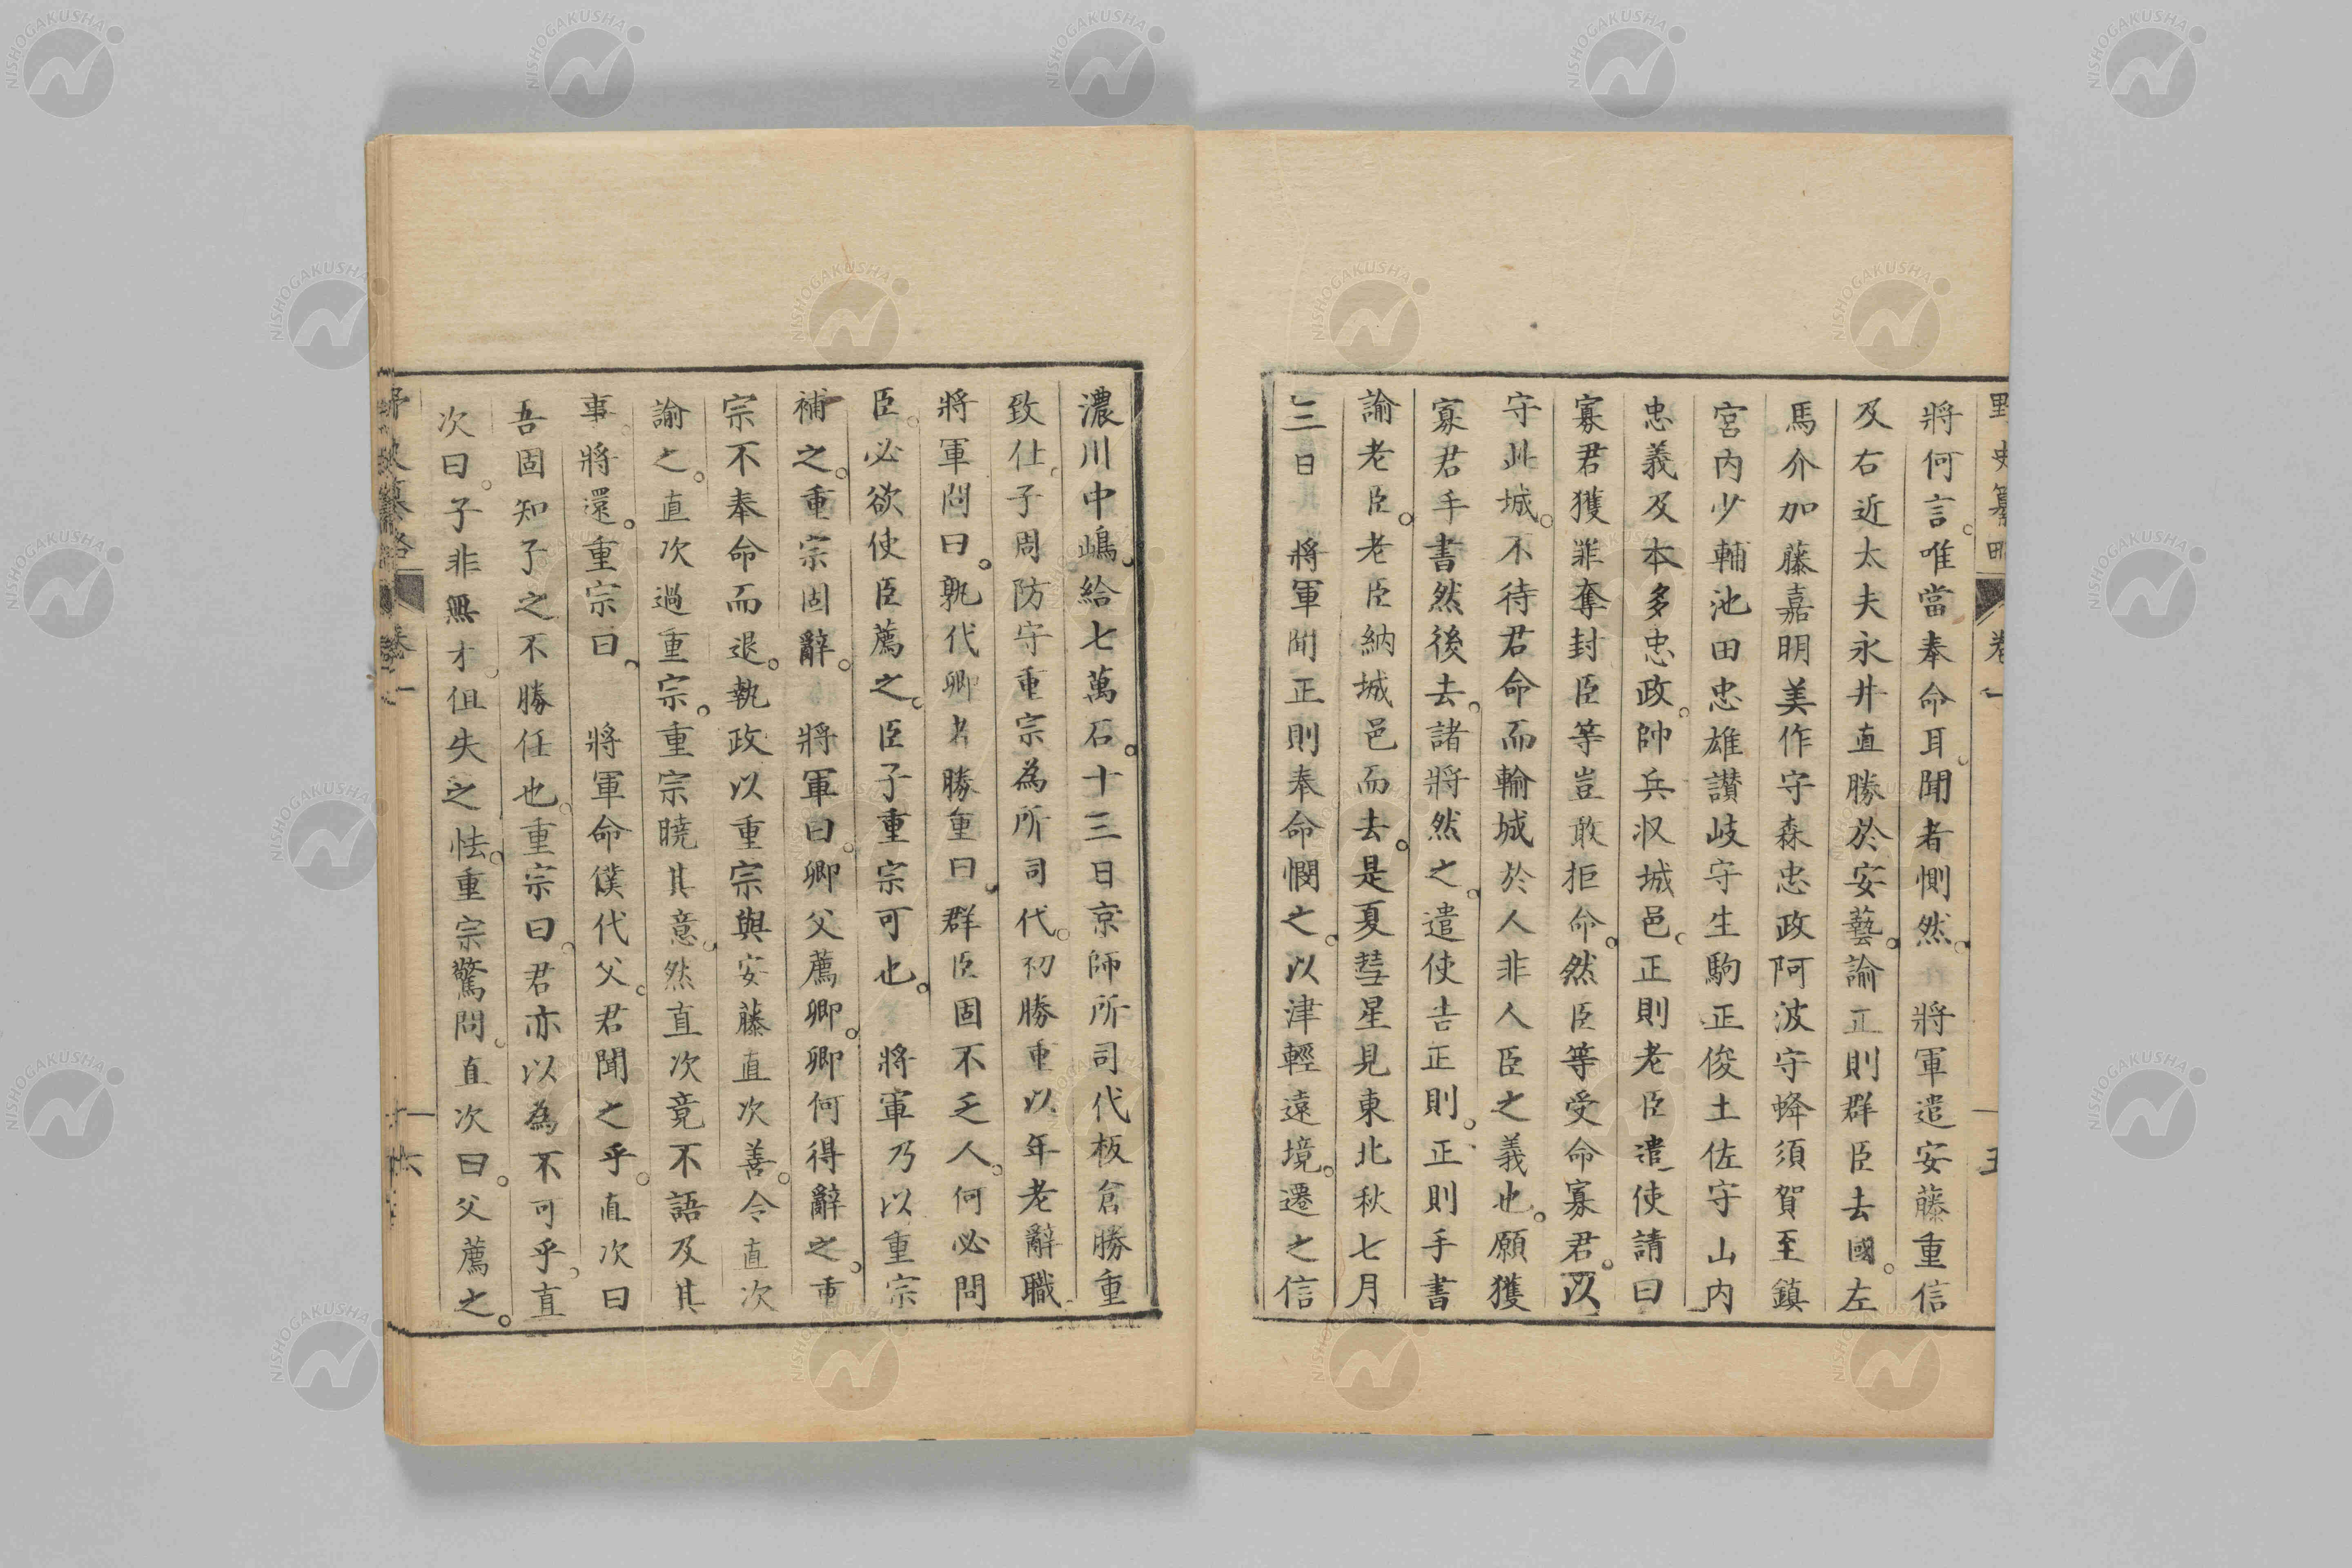 野史纂略 卷一
將何言。唯當奉命耳。聞者惻然。 將軍遣安藤重信
及右近太夫永井直勝於安藝。諭正則群臣去國。左
馬介加藤嘉明美作守森忠政阿波守蜂須賀至鎮
宮內少輔池田忠雄讃岐守生駒正俊土佐守山內
忠義及本多忠政。帥兵収城邑。正則老臣遣使請曰
寡君獲罪奪封臣等豈敢拒命。然臣等受命寡君。以
守此城。不待君命而輸城於人非人臣之義也。願獲
寡君手書然後去。諸將然之。遣使告正則。正則手書
諭老臣。老臣納城邑而去。是夏彗星見東北秋七月
三日 將軍聞正則奉命憫之。以津輕遠境。遷之信
濃川中嶋。給七萬石。十三日京師所司代板倉勝重
致仕。子周防守重宗為所司代。初勝重以年老辭職
將軍問曰。孰代卿者勝重曰。群臣固不乏人。何必問
臣。必欲使臣薦之。臣子重宗可也。 將軍乃以重宗
補之。重宗固辭。 將軍曰。卿父薦卿。卿何得辭之。重
宗不奉命而退。執政以重宗與安藤直次善。令直次
諭之。直次過重宗。重宗曉其意。然直次竟不語及其
事。將還。重宗曰。 將軍命僕代父。君聞之乎。直次曰
吾固知子之不勝任也。重宗曰。君亦以為不可乎。直
次曰。子非無才。但失之怯。重宗驚問。直次曰。父薦之。